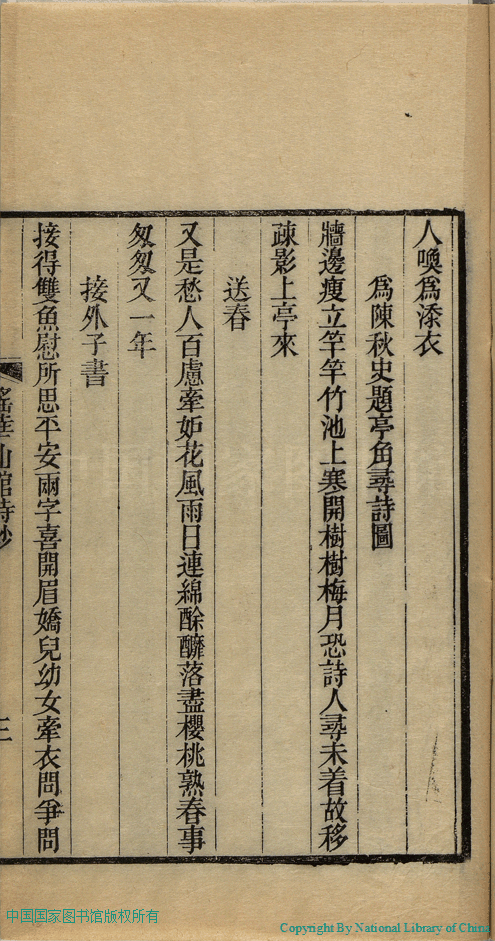 人喚爲添衣
爲陳秋史題亭角尋詩圖
牆邊瘦立竿竿竹池上寒開樹樹梅月恐詩人尋未着故移
疎影上亭來
送春
又是愁人百慮牽妒花風雨日連綿酴醾落盡櫻桃熟春事
匆匆又一年
接外子書
接得雙魚慰所思平安兩字喜開眉嬌兒幼女牽衣問爭問
華山館詩鈔
三
中国国家图书馆版权所有
Copyright By National Library of China